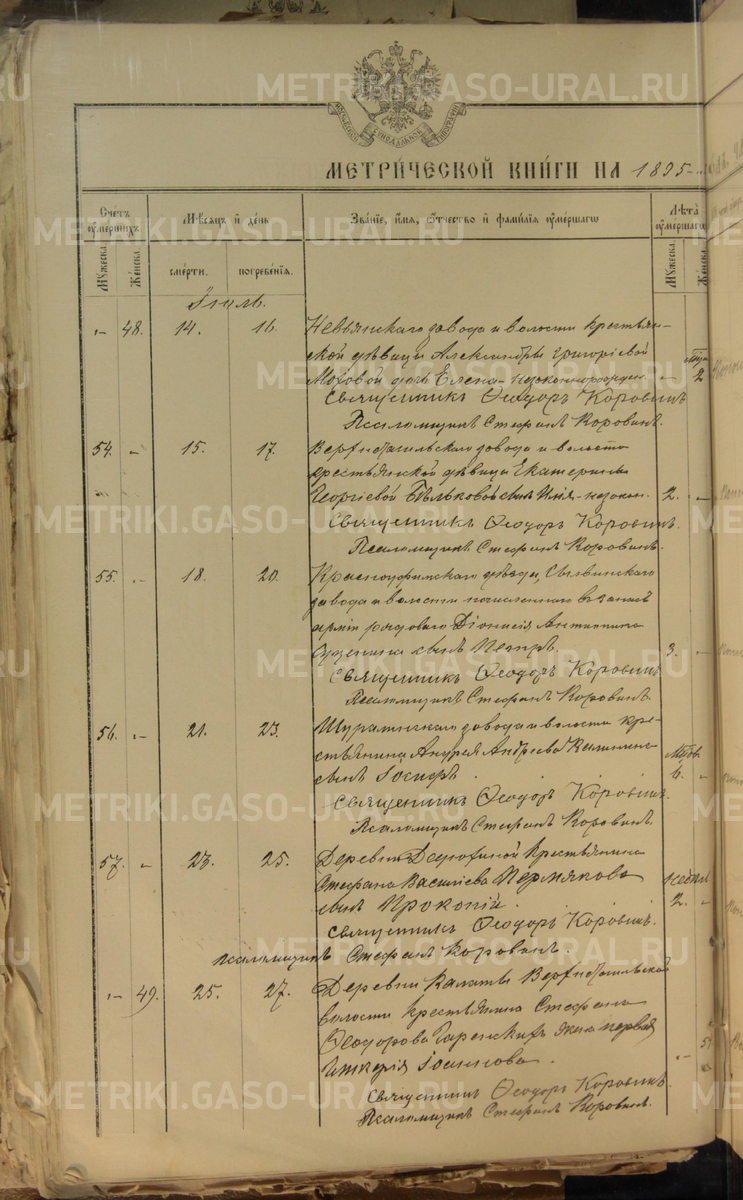 МЕТРИ́ЧЕСКОЙ КНИ́ГИ НА 1895
Счетъ умершихъ
Мѣсяцъ и день
Званіе, имя, отчество и фамилія умершаго
Лѣта умершаго
Мужеска.
Женска.
смерти.
погребенія.
Мужеска.
Женска.
Іюль.
48. 14. 16. Невьянскаго завода и волости крестьян-
ской дѣвицы Александры Григоріевой
дочь Елена незаконнорожден. 2
Священникъ Ѳеодоръ Коровинъ
Псаломщикъ Стефанъ Коровинъ.
54. - 15. 17. Верхнетагильскаго завода и волости
крестьянской дѣвицы Екатерины
Георгіевой сынъ незакон. 2. -
Священникъ Ѳеодоръ Коровинъ.
Псаломщикъ Стефанъ Коровинъ.
55. - 18. 20. Красноуфимскаго уѣзда, Сылвинскаго
завода и волости въ запасъ
арміи рядоваго Діонисія
сынъ Петръ. 3. -
Священникъ Ѳеодоръ Коровинъ
Псаломщикъ Стефанъ Коровинъ.
56. - 21. 23. Шуралинскаго завода и волости кре-
стьянина Андрея Андреева Калинина
сынъ 6. -
Священникъ Ѳеодоръ Коровинъ.
Псаломщикъ Стефанъ Коровинъ.
57. - 23. 25. Деревни крестьянина
Стефана Василіева Пермякова недѣл.
сынъ Прокопій. 2. -
Священникъ Ѳеодоръ Коровинъ.
Псаломщикъ Стефанъ Коровинъ.
- 49. 25. 27. Деревни Калаты Верхнетагильской
волости крестьянина Стефана
Ѳеодорова жена первая
Іоаннова. -
Священникъ Ѳеодоръ Коровинъ.
Псаломщикъ Стефанъ Коровинъ.
METRIKI.GASO-URAL.RU